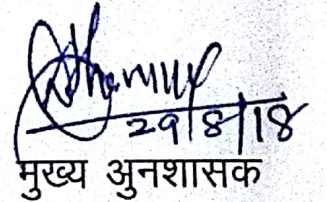 29/8/18
मुख्य अुनशासक